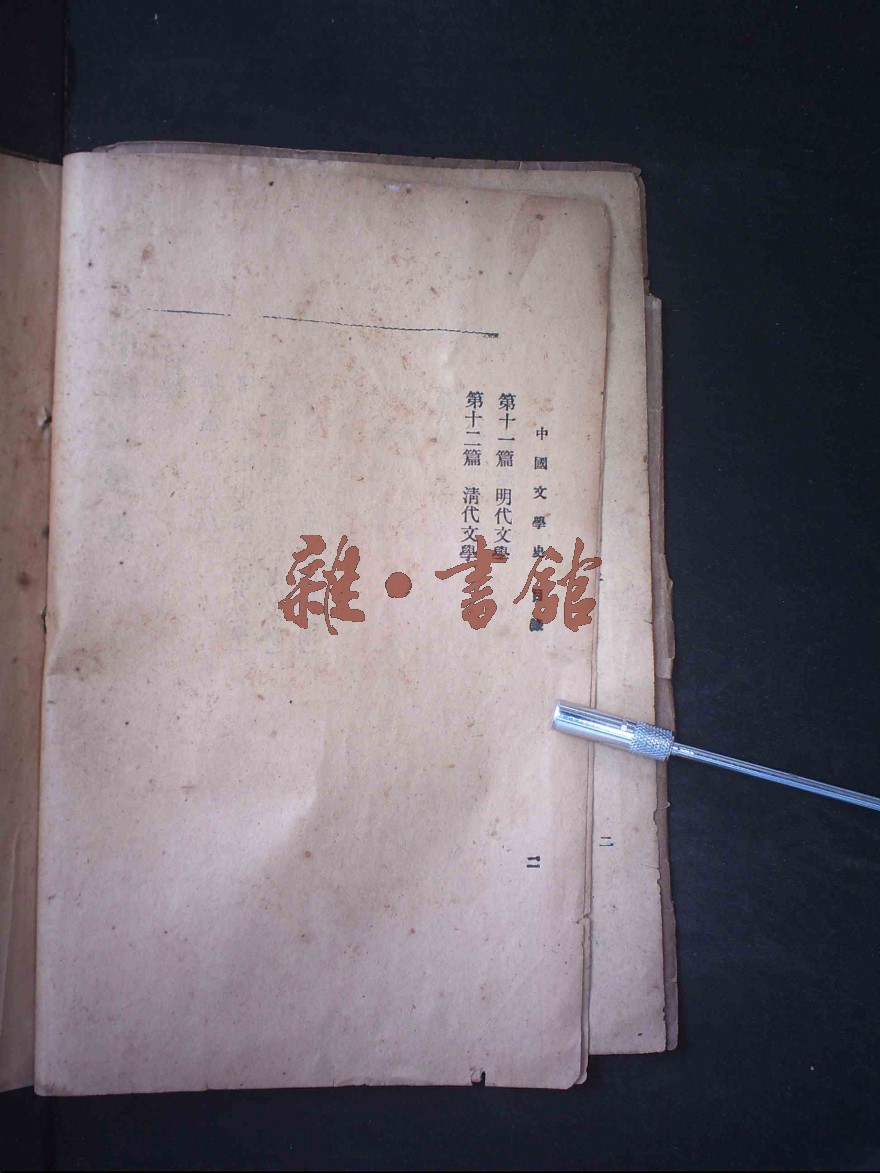 中國文學史 目錄
第十一篇 明代文學
第十二篇 清代文學
二
二
雜·書館